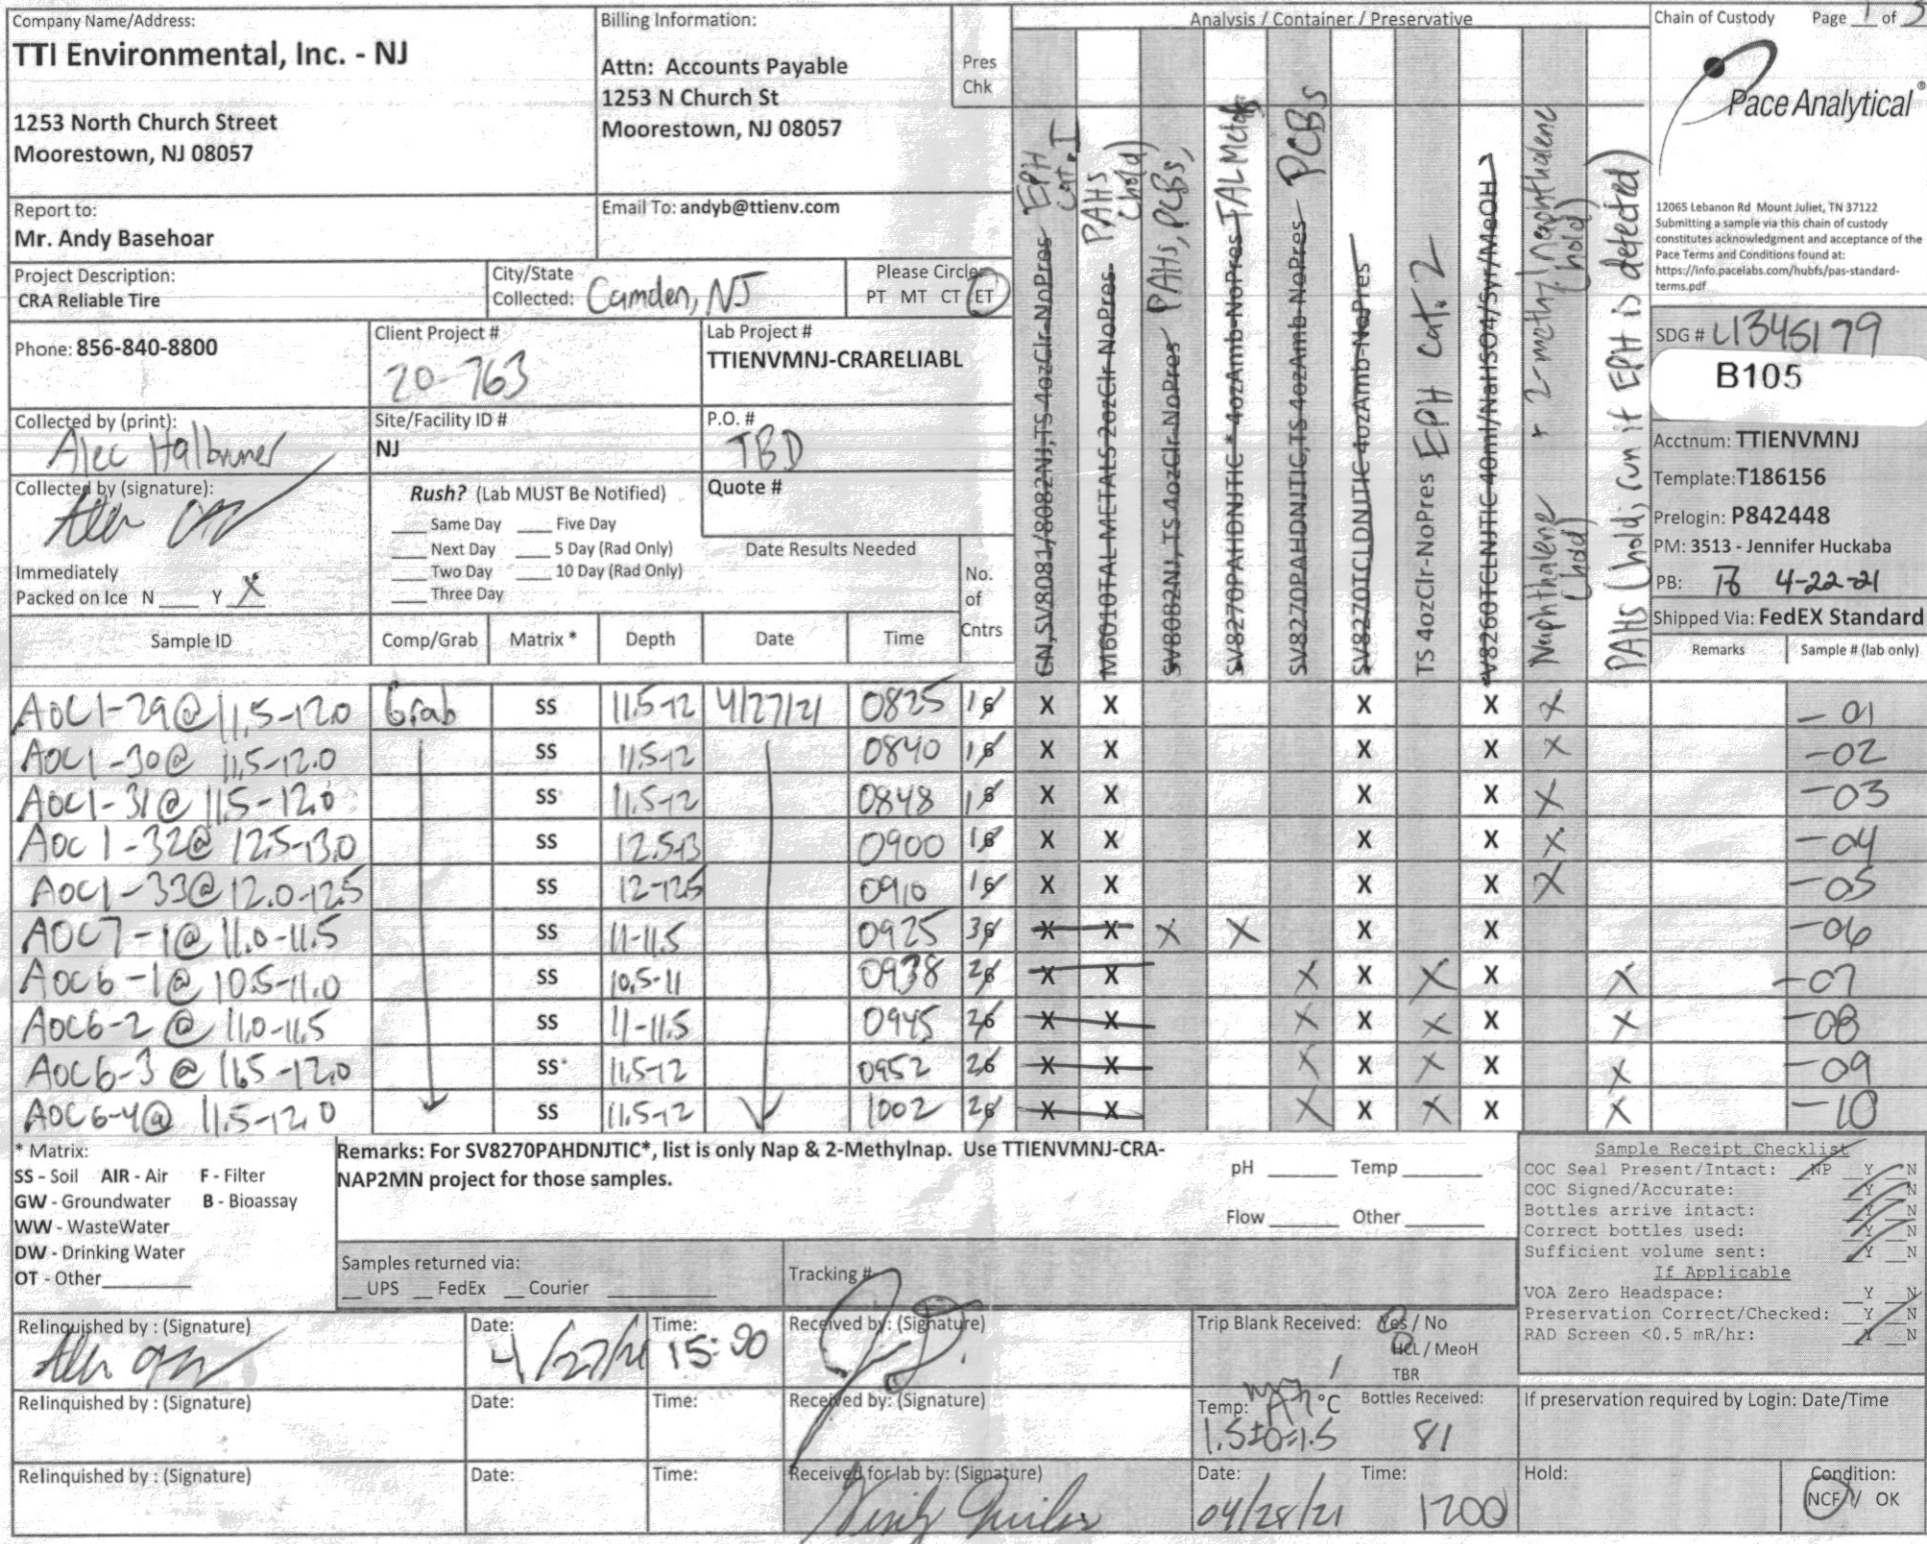 Company Name/Address:
TTI Environmental, Inc. - NJ
1253 North Church Street
Moorestown, NJ 08057
Billing Information:
Attn: Accounts Payable
1253 N Church St
Moorestown, NJ 08057
Pres
Chk
Analysis / Container / Preservative
Chain of Custody Page 1 of
Pace Analytical®
12065 Lebanon Rd Mount Juliet, TN 37122
Submitting a sample via this chain of custody
constitutes acknowledgment and acceptance of the
Pace Terms and Conditions found at:
https://info.pacelabs.com/hubfs/pas-standard-
terms.pdf
Report to:
Mr. Andy Basehoar
Email To: andyb@ttienv.com
Project Description:
CRA Reliable Tire
City/State
Collected: Camden, NJ
Please Circle:
PT MT CT ET
Phone: 856-840-8800
Client Project #
20-763
Lab Project #
TTIENVMNJ-CRARELIABL
Collected by (print):
Alec Halbruner
Site/Facility ID #
NJ
P.O. #
TBD
Collected by (signature):
Rush? (Lab MUST Be Notified)
Same Day Five Day
Next Day 5 Day (Rad Only)
Two Day 10 Day (Rad Only)
Three Day
Quote #
Date Results Needed
Immediately
Packed on Ice N Y X
No.
of
Cntrs
CN,SV8081/8082NJ,TS 4ozClr-NoPres EPH Cat. I
M6010TAL METALS 2ozClr-NoPres PAHs (hold)
SV8082NJ, TS 4ozClr-NoPres PAHs, PCBs,
SV8270PAHDNJTIC* 4ozAmb-NoPres TAL Metals
SV8270PAHDNJTIC,TS 4ozAmb-NoPres PCBs
SV8270TCLDNJTIC 4ozAmb-NoPres
TS 4ozClr-NoPres EPH Cat. 2
V8260TCLNJTIC 40ml/NaHSO4/Syr/MeOH
Naphthalene + 2-methylnaphthalene (hold) (hold)
PAHs (hold; run if EPH is detected)
SDG # L1345179
B105
Acctnum: TTIENVMNJ
Template:T186156
Prelogin: P842448
PM: 3513 - Jennifer Huckaba
PB: 4-22-21
Shipped Via: FedEX Standard
Sample ID Comp/Grab Matrix * Depth Date Time Remarks Sample # (lab only)
AOC1-29@11.5-12.0 Grab SS 11.5-12 4/27/21 0825 1 6 X X X X X -01
AOC1-30@ 11.5-12.0 SS 11.5-12 0840 1 6 X X X X X -02
AOC1-31@ 11.5-12.0 SS 11.5-12 0848 1 6 X X X X X -03
AOC1-32@ 12.5-13.0 SS 12.5-13 0900 1 6 X X X X X -04
AOC1-33@12.0-12.5 SS 12-12.5 0910 1 6 X X X X X -05
AOC7-1@ 11.0-11.5 SS 11-11.5 0925 3 6 X X X X X X -06
AOC6-1@ 10.5-11.0 SS 10.5-11 0938 2 6 X X X X X X X -07
AOC6-2 @ 11.0-11.5 SS 11-11.5 0945 2 6 X X X X X X X -08
AOC6-3 @ 11.5-12.0 SS 11.5-12 0952 2 6 X X X X X X X -09
AOC6-4@ 11.5-12.0 SS 11.5-12 1002 2 6 X X X X X X X -10
* Matrix:
SS - Soil AIR - Air F - Filter
GW - Groundwater B - Bioassay
WW - WasteWater
DW - Drinking Water
OT - Other
Remarks: For SV8270PAHDNJTIC*, list is only Nap & 2-Methylnap. Use TTIENVMNJ-CRA-
NAP2MN project for those samples.
pH Temp
Flow Other
Samples returned via:
UPS FedEx Courier
Tracking #
Sample Receipt Checklist
COC Seal Present/Intact: NP Y N
COC Signed/Accurate: Y N
Bottles arrive intact: Y N
Correct bottles used: Y N
Sufficient volume sent: Y N
If Applicable
VOA Zero Headspace: Y N
Preservation Correct/Checked: Y N
RAD Screen <0.5 mR/hr: Y N
Relinquished by : (Signature)
Date: 4/27/21 Time: 15:
Received by: (Signature)
Trip Blank Received: Yes / No
HCL / MeoH
TBR
Relinquished by : (Signature)
Date: Time:
Received by: (Signature)
Temp: °C Bottles Received:
1.5±0=1.5 81
If preservation required by Login: Date/Time
Relinquished by : (Signature)
Date: Time:
Received for lab by: (Signature)
Date: 04/28/21 Time: 1200
Hold:
Condition:
NCF / OK